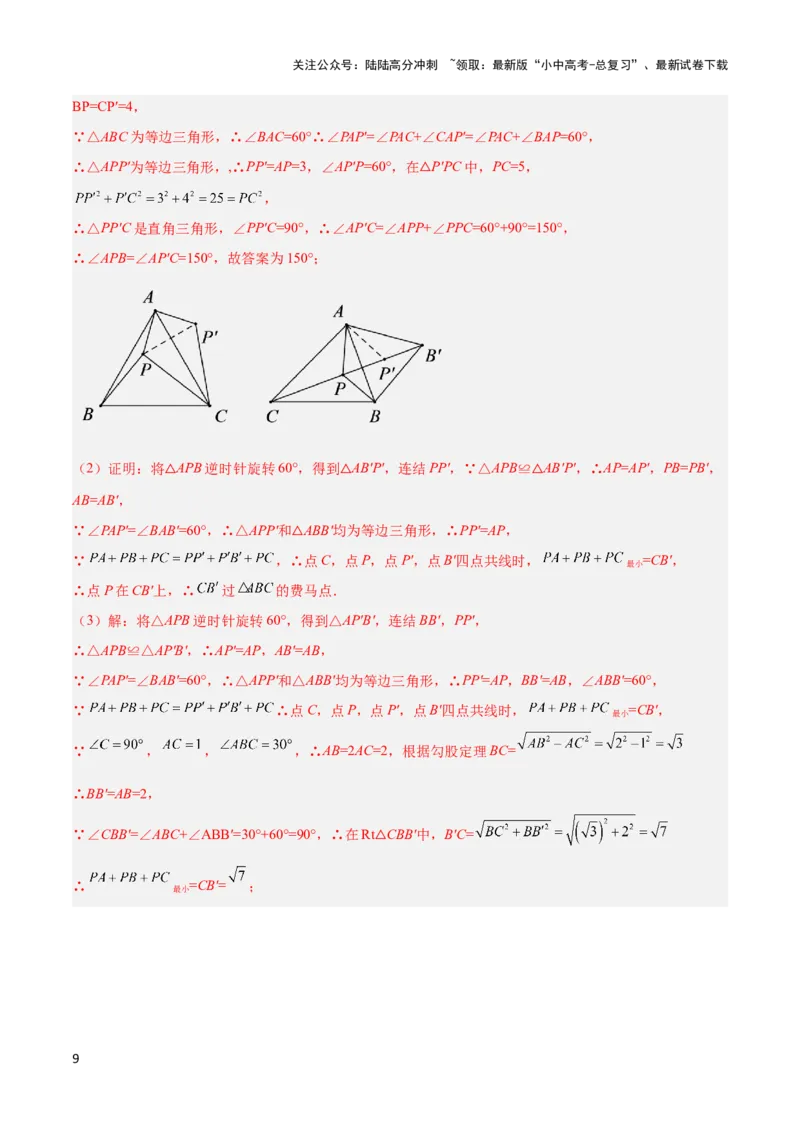 关注公众号：陆陆高分冲刺　~领取：最新版“小中高考-总复习”、最新试卷下载
BP=CP′=4，
∵△ABC为等边三角形，∴∠BAC=60°∴∠PAP′=∠PAC+∠CAP′=∠PAC+∠BAP=60°，
∴△APP′为等边三角形，,∴PP′=AP=3，∠AP′P=60°，在△P′PC中，PC=5，
PP′²+P′C²=3²+4²=25=PC²，
∴△PP′C是直角三角形，∠PP′C=90°，∴∠AP′C=∠APP+∠PPC=60°+90°=150°，
∴∠APB=∠AP′C=150°，故答案为150°；
A
P′
P
B
C
A
B′
P′
P
C
B
（2）证明：将△APB逆时针旋转60°，得到△AB′P′，连结PP′，∵△APB≌△AB′P′，∴AP=AP′，PB=PB′，
AB=AB′，
∵∠PAP′=∠BAB′=60°，∴△APP′和△ABB′均为等边三角形，∴PP′=AP，
∵PA+PB+PC=PP′+P′B′+PC，∴点C，点P，点P′，点B′四点共线时，PA+PB+PC最小=CB′，
∴点P在CB′上，∴CB′过△ABC的费马点．
（3）解：将△APB逆时针旋转60°，得到△AP′B′，连结BB′，PP′，
∴△APB≌△AP′B′，∴AP′=AP，AB′=AB，
∵∠PAP′=∠BAB′=60°，∴△APP′和△ABB′均为等边三角形，∴PP′=AP，BB′=AB，∠ABB′=60°，
∵PA+PB+PC=PP′+P′B′+PC∴点C，点P，点P′，点B′四点共线时，PA+PB+PC最小=CB′，
∵∠C=90°，AC=1，∠ABC=30°，∴AB=2AC=2，根据勾股定理BC=√(AB²−AC²)=√(2²−1²)=√3
∴BB′=AB=2，
∵∠CBB′=∠ABC+∠ABB′=30°+60°=90°，∴在Rt△CBB′中，B′C=√(BC²+BB′²)=√((√3)²+2²)=√7
∴PA+PB+PC最小=CB′=√7；
9